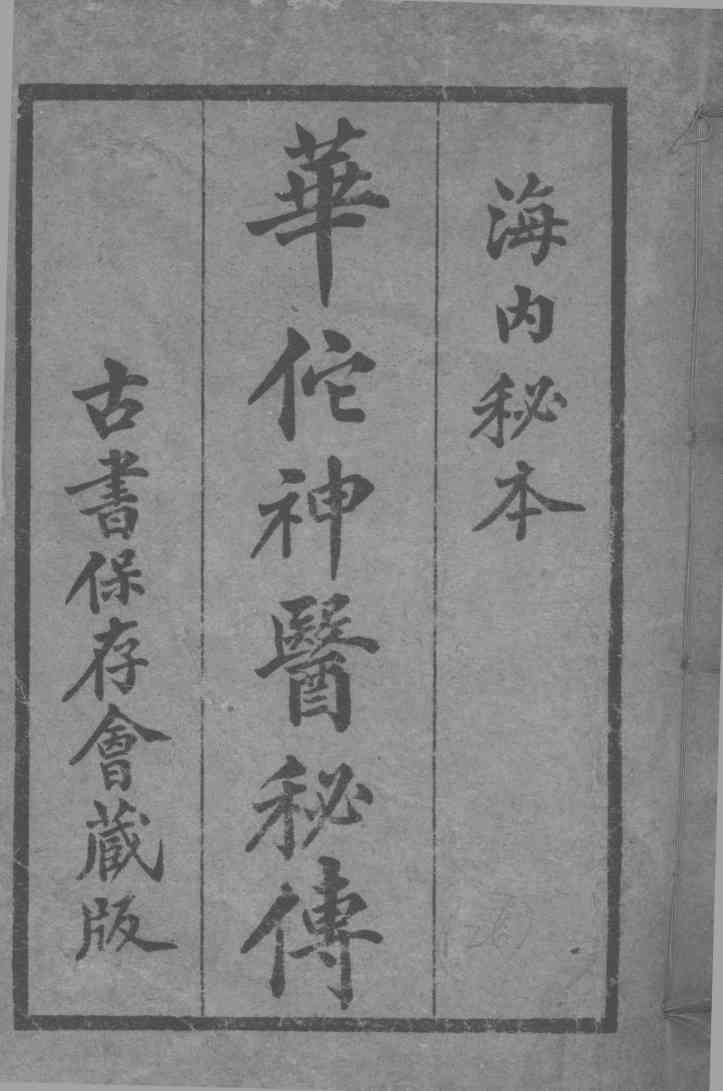 海内秘本
華佗神醫秘傳
古書保存會蔵版